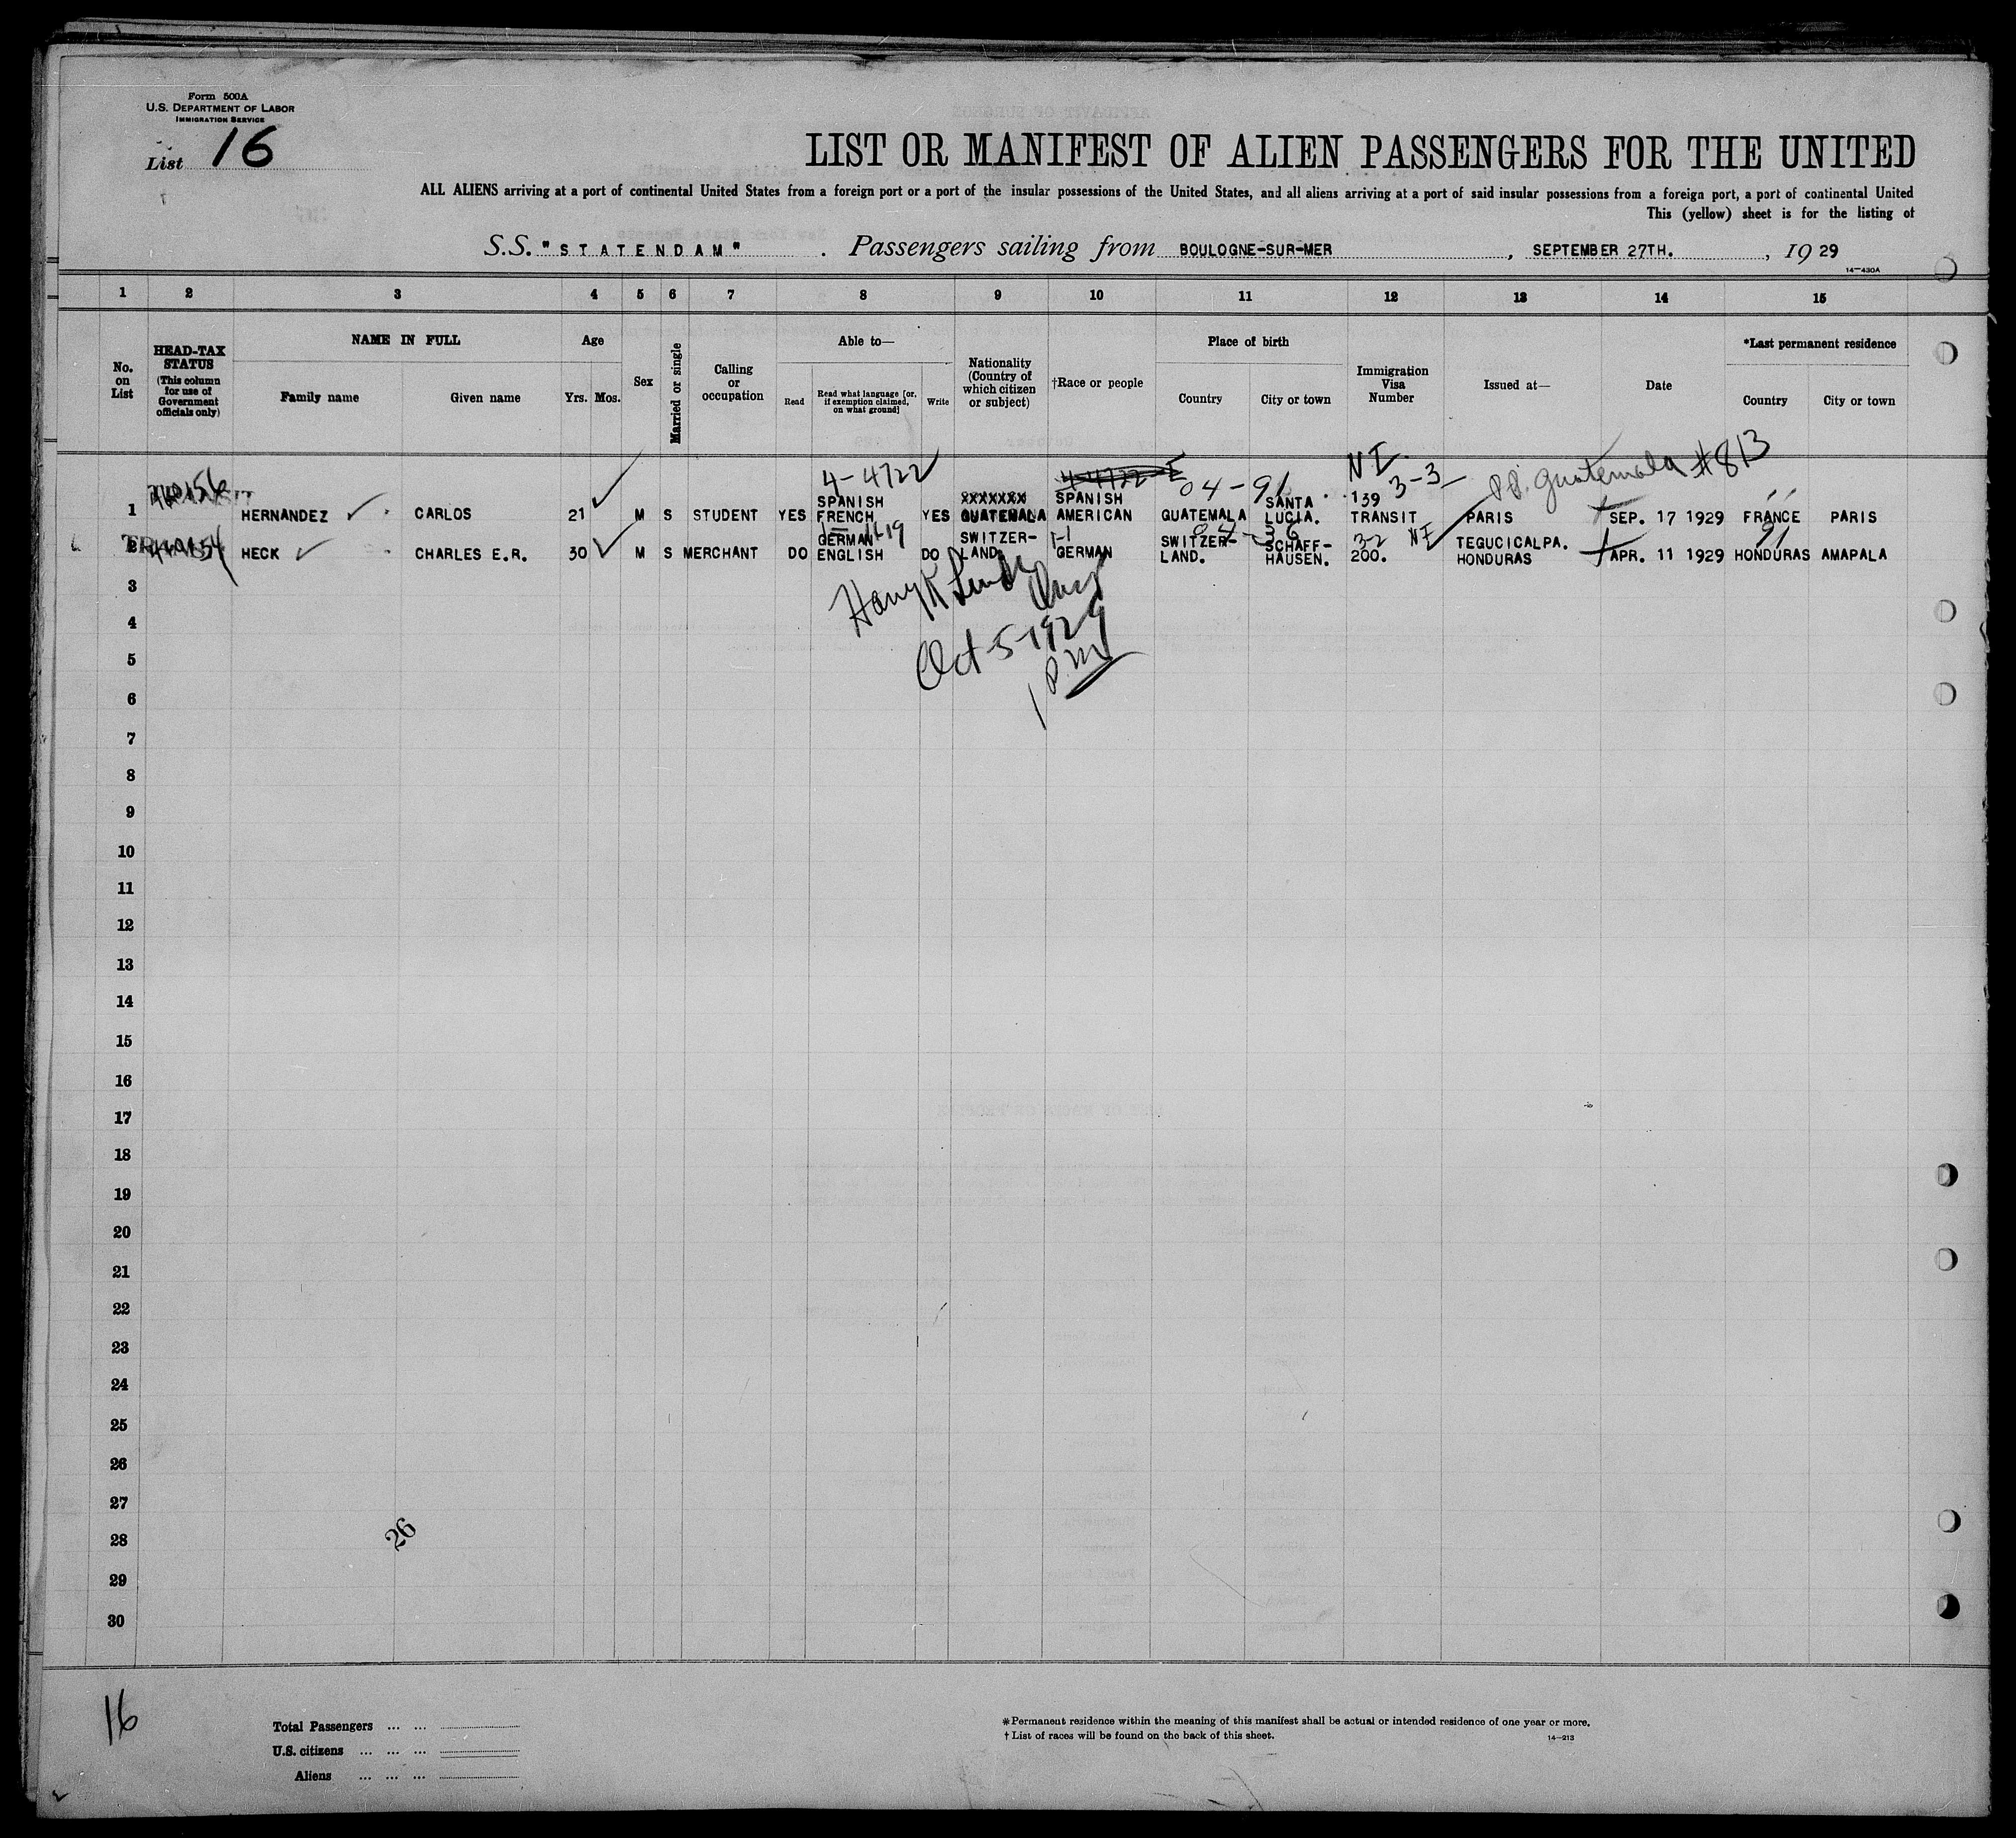 Form 500A
U.S. DEPARTMENT OF LABOR
IMMIGRATION SERVICE
List 16
LIST OR MANIFEST OF ALIEN PASSENGERS FOR THE UNITED
ALL ALIENS arriving at a port of continental United States from a foreign port or a port of the insular possessions of the United States, and all aliens arriving at a port of said insular possessions from a foreign port, a port of continental United
This (yellow) sheet is for the listing of
S.S. "STATENDAM" . Passengers sailing from BOULOGNE-SUR-MER , SEPTEMBER 27TH. , 19 29
14-430A
1 2 3 4 5 6 7 8 9 10 11 12 13 14 15
No. on List
HEAD-TAX STATUS (This column for use of Government officials only)
NAME IN FULL
Family name Given name
Age
Yrs. Mos.
Sex
Married or single
Calling or occupation
Able to—
Read
Read what language [or, if exemption claimed, on what ground]
Write
Nationality (Country of which citizen or subject)
†Race or people
Place of birth
Country City or town
Immigration Visa Number
Issued at—
Date
*Last permanent residence
Country City or town
4-4722 04-91 NI 3-3 P.P. Guatemala #813
1 HERNANDEZ CARLOS 21 M S STUDENT YES SPANISH FRENCH YES XXXXXXX GUATEMALA SPANISH AMERICAN GUATEMALA SANTA LUCIA. 139 TRANSIT PARIS SEP. 17 1929 FRANCE PARIS
2 HECK CHARLES E.R. 30 M S MERCHANT DO GERMAN ENGLISH DO SWITZER-LAND. 1-1 GERMAN SWITZER-LAND. SCHAFF-HAUSEN. 3-2 NI 200. TEGUCICALPA. HONDURAS APR. 11 1929 91 HONDURAS AMAPALA
3
Oct-5-1929
4
1 P.M
5
6
7
8
9
10
11
12
13
14
15
16
17
18
19
20
21
22
23
24
25
26
27
28
26
29
30
16
Total Passengers ... ...
U.S. citizens ... ... ...
Aliens ... ... ...
*Permanent residence within the meaning of this manifest shall be actual or intended residence of one year or more.
†List of races will be found on the back of this sheet.
14-213